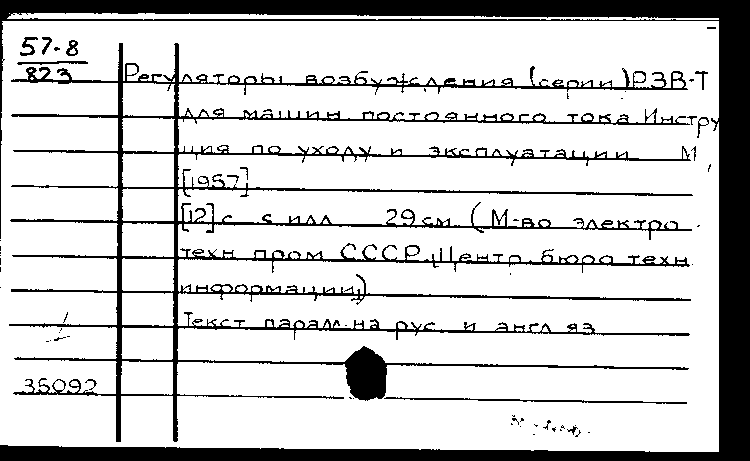 57-8
823
Регуляторы возбуждения (серии) РЗВ-Т
для машин постоянного тока Инстру
ция по уходу и эксплуатации М,
[1957]
[12] с с илл 29 см (М-во электро
техн пром СССР Центр. бюро техн
информации)
Текст паралл. на рус. и англ яз
35092